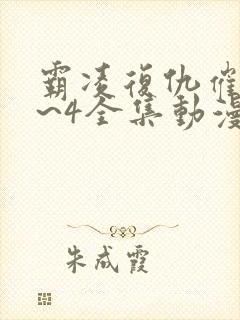 霸凌復仇催
～4全集動漫
朱成霞